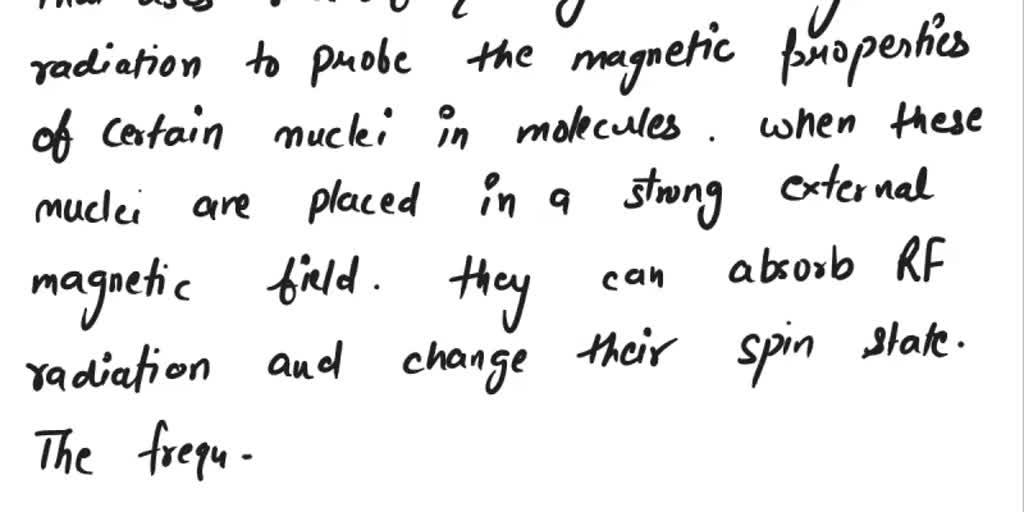 radiation to probe the magnetic properties
of certain nuclei in molecules. when these
nuclei are placed in a strong external
magnetic field. they can absorb RF
radiation and change their spin state.
The frequ.